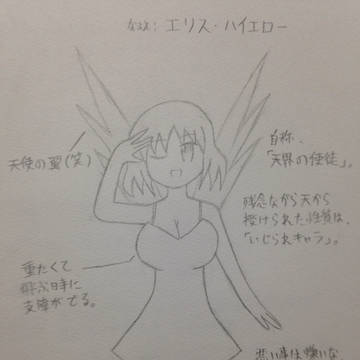 なまえ:エリス・ハイエロー
天使の翼(笑)
自称、
「天界の使徒」。
残念ながら天から
授けられた性質は、
「いじられキャラ」。
重たくて
飛ぶ時に
支障がでる。
悪い事は嫌いな